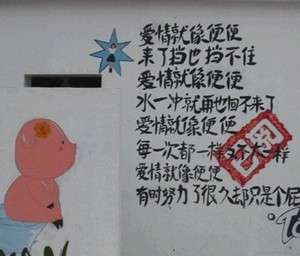 爱情就像便便
来了挡也挡不住
爱情就像便便
水一冲就再也回不来了
爱情就像便便
每一次都一样又不大一样
爱情就像便便
有时努力了很久却只是个屁